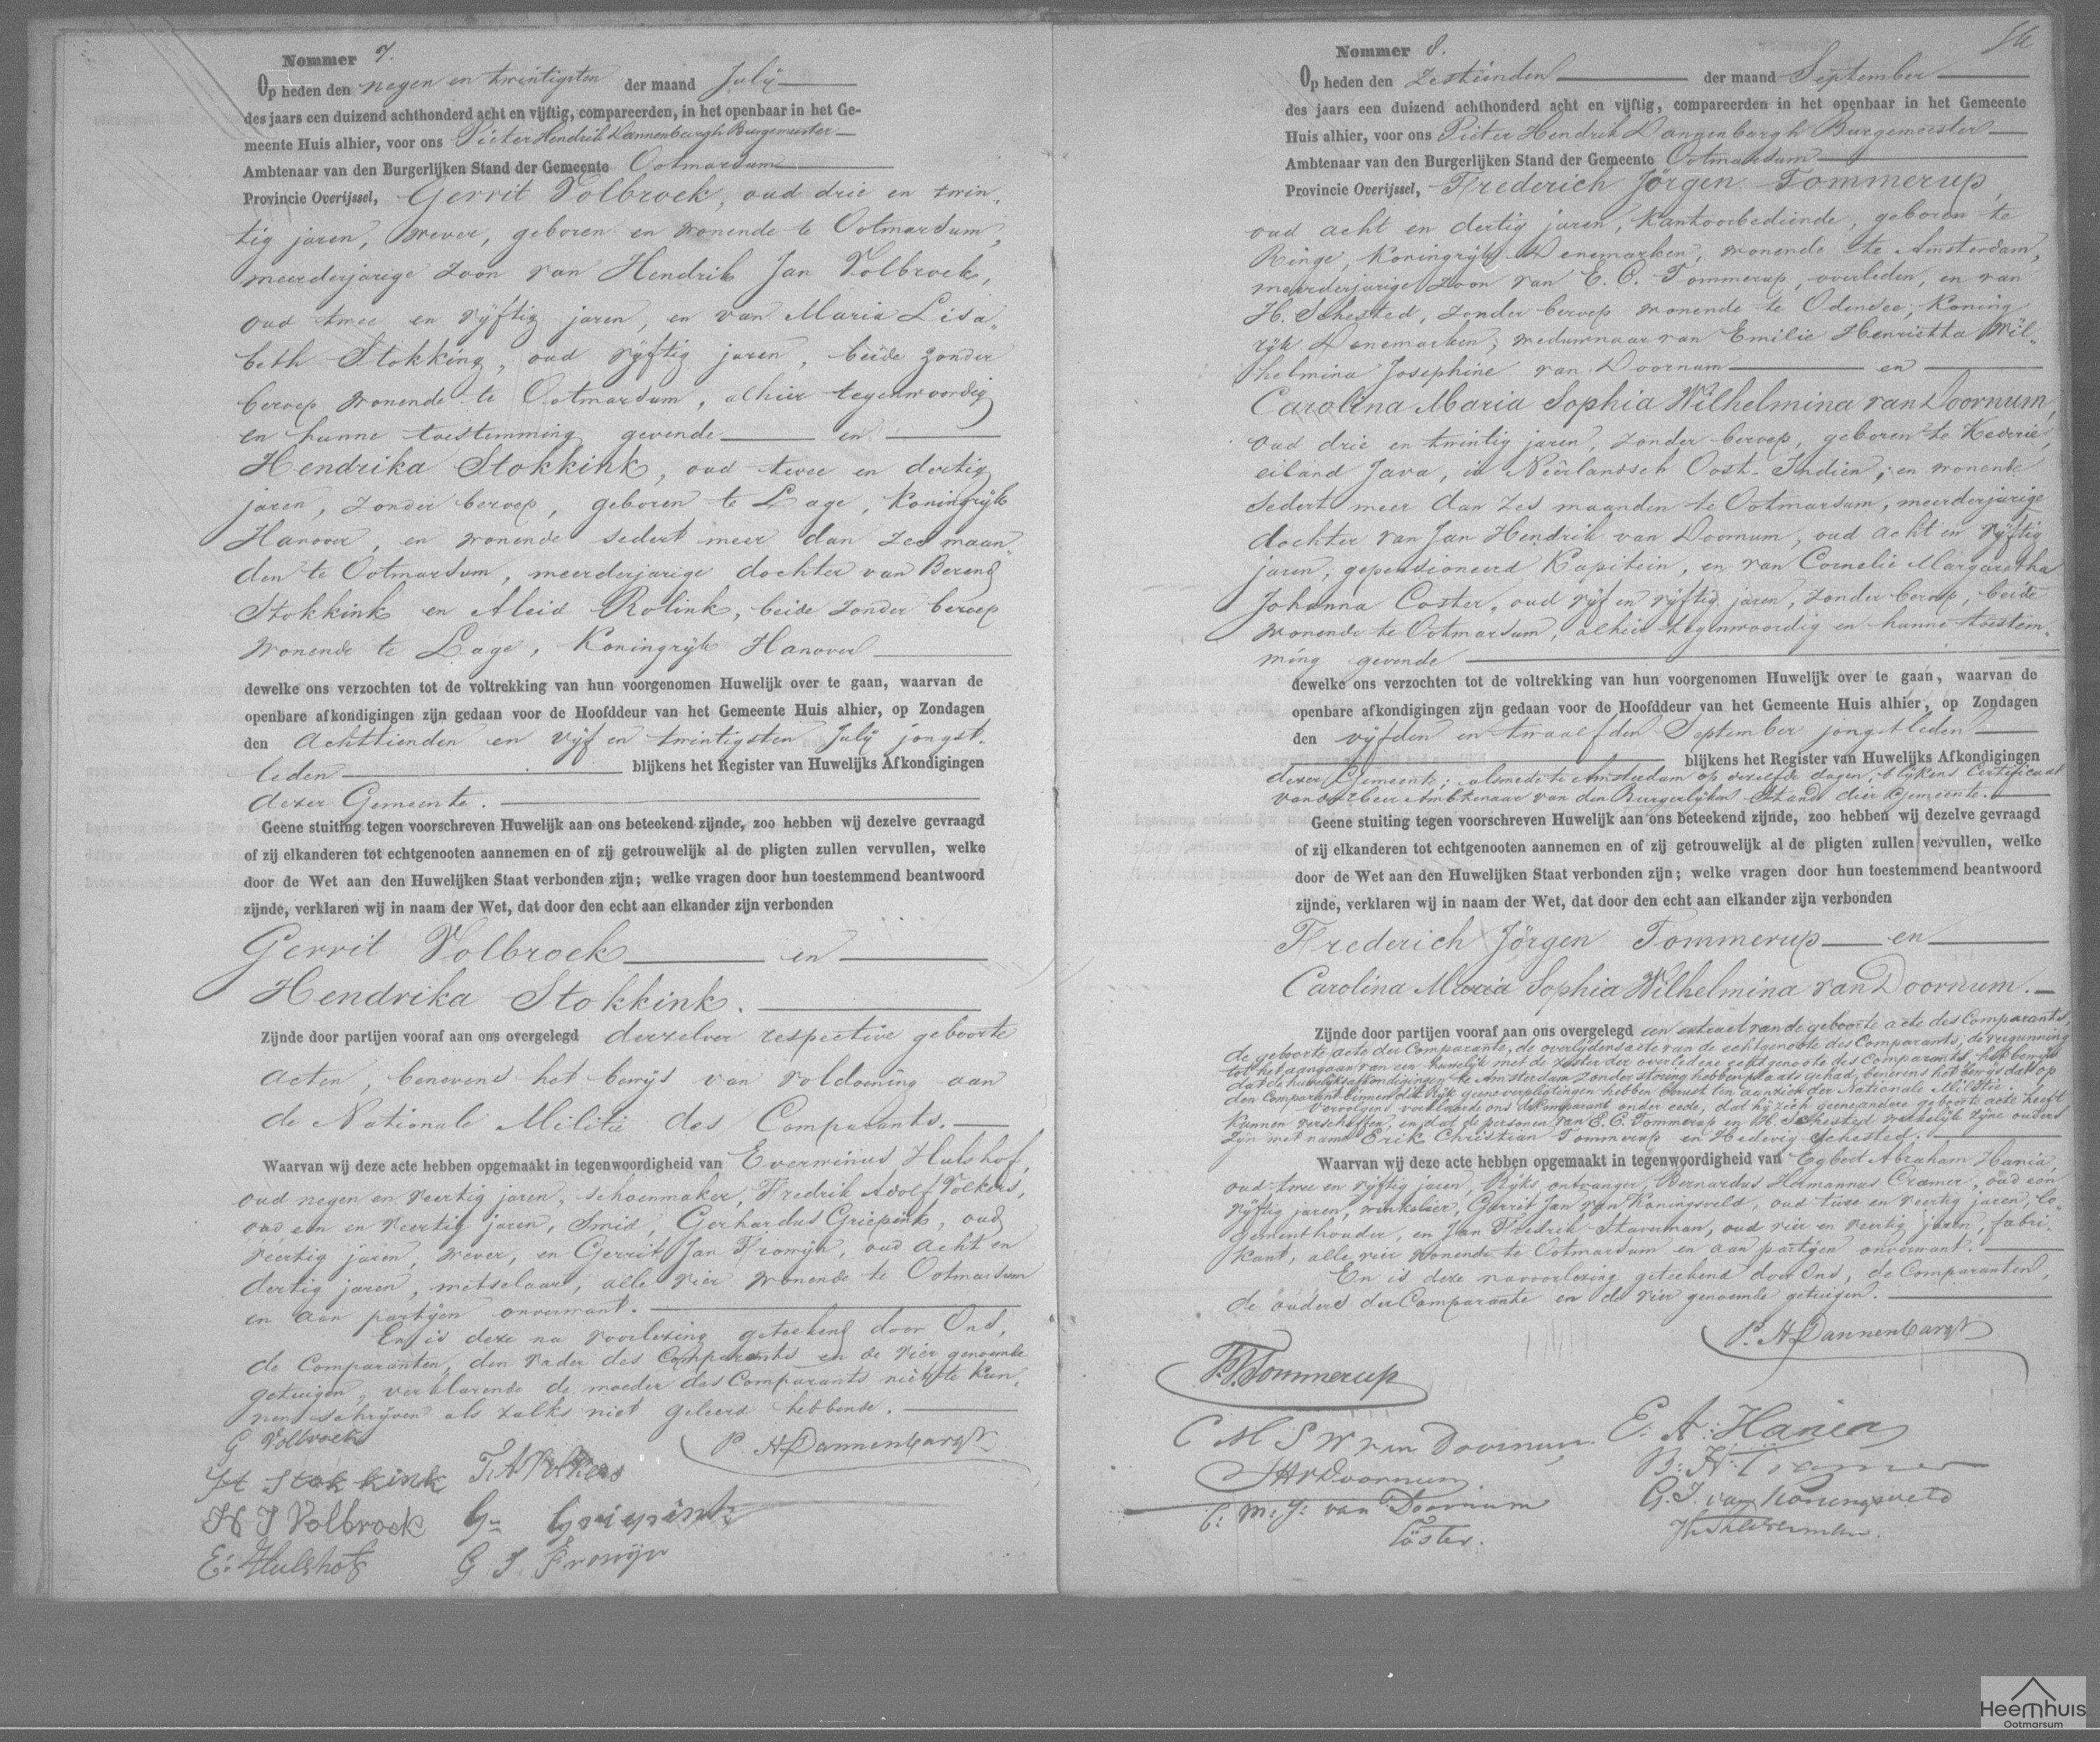 Nommer 7.
Op heden den negen en twintigsten der maand July
des jaars een duizend achthonderd acht en vijftig, compareerden, in het openbaar in het Ge-
meente Huis alhier, voor ons Pieter Hendrik Dannenbargh Burgemeester
Ambtenaar van den Burgerlijken Stand der Gemeente Ootmarsum
Provincie Overijssel, Gerrit Volbroek, oud drie en twin„
tig jaren, wever, geboren en wonende te Ootmarsum,
meerderjarige zoon van Hendrik Jan Volbroek,
oud twee en vijftig jaren, en van Maria Lisa„
beth Stokking, oud vijftig jaren, beide zonder
beroep wonende te Ootmarsum, alhier tegenwoordig
en hunne toestemming gevende en
Hendrika Stokkink, oud twee en dertig
jaren, zonder beroep, geboren te Lage, Koningrijk
Hanover, en wonende sedert meer dan zes maan„
den te Ootmarsum, meerderjarige dochter van Berend
Stokkink en Aleid Rolink, beide zonder beroep
wonende te Lage, Koningrijk Hanover
dewelke ons verzochten tot de voltrekking van hun voorgenomen Huwelijk over te gaan, waarvan de
openbare afkondigingen zijn gedaan voor de Hoofddeur van het Gemeente Huis alhier, op Zondagen
den achttienden en vijf en twintigsten July jongst„
leden blijkens het Register van Huwelijks Afkondigingen
dezer Gemeente.
Geene stuiting tegen voorschreven Huwelijk aan ons beteekend zijnde, zoo hebben wij dezelve gevraagd
of zij elkanderen tot echtgenooten aannemen en of zij getrouwelijk al de pligten zullen vervullen, welke
door de Wet aan den Huwelijken Staat verbonden zijn; welke vragen door hun toestemmend beantwoord
zijnde, verklaren wij in naam der Wet, dat door den echt aan elkander zijn verbonden
Gerrit Volbroek en
Hendrika Stokkink.
Zijnde door partijen vooraf aan ons overgelegd derzelver respective geboorte
acten, benevens het bewijs van voldoening aan
de Nationale Militie des Comparants.
Waarvan wij deze acte hebben opgemaakt in tegenwoordigheid van Everwinus Hulshof,
oud negen en veertig jaren, schoenmaker, Fredrik Adolf Volkers,
oud een en veertig jaren, smid, Gerhardus Griepink, oud
veertig jaren, wever, en Gerrit Jan Fronijn, oud acht en
dertig jaren, metselaar, alle vier wonende te Ootmarsum
en aan partijen onverwant.
En is deze na voorlezing geteekend door Ons,
de Comparanten, den vader des Comparants en de vier genoemde
getuigen, verklarende de moeder des Comparants niet te kun„
nen schrijven als zulks niet geleerd hebbende.
G Volbroek
P. H Dannenbargh
H Stokkink
F. A Volkers
H J Volbroek
G. Griepink
E: Hulshof
G J Fronijn
Nommer 8.
Op heden den zestienden der maand September
des jaars een duizend achthonderd acht en vijftig, compareerden in het openbaar in het Gemeente
Huis alhier, voor ons Pieter Hendrik Dannenbargh Burgemeester
Ambtenaar van den Burgerlijken Stand der Gemeente Ootmarsum
Provincie Overijssel, Frederich Jörgen Tommerup,
oud acht en dertig jaren, Kantoorbediende, geboren te
Ringe, Koningrijk Denemarken, wonende te Amsterdam,
meerderjarige zoon van E. C. Tommerup, overleden, en van
H. Schested, zonder beroep wonende te Odensee, Koning„
rijk Denemarken; weduwnaar van Emilie Henrietta Wil„
helmina Josephine van Doornum en
Carolina Maria Sophia Wilhelmina van Doornum,
oud drie en twintig jaren, zonder beroep, geboren te Kederie,
eiland Java, in Neêrlandsch Oost-Indien, en wonende
sedert meer dan zes maanden te Ootmarsum, meerderjarige
dochter van Jan Hendrik van Doornum, oud acht en vijftig
jaren, gepensioneerd Kapitein, en van Cornelie Margaretha
Johanna Coster, oud vijf en vijftig jaren, zonder beroep, beide
wonende te Ootmarsum, alhier tegenwoordig en hunne toestem„
ming gevende
dewelke ons verzochten tot de voltrekking van hun voorgenomen Huwelijk over te gaan, waarvan de
openbare afkondigingen zijn gedaan voor de Hoofddeur van het Gemeente Huis alhier, op Zondagen
den vijfden en twaalfden September jongstleden
blijkens het Register van Huwelijks Afkondigingen
dezer Gemeente; alsmede te Amsterdam op dezelfde dagen, blijkens Certificaat
van den Heer Ambtenaar van den Burgerlijken Stand dier Gemeente.
Geene stuiting tegen voorschreven Huwelijk aan ons beteekend zijnde, zoo hebben wij dezelve gevraagd
of zij elkanderen tot echtgenooten aannemen en of zij getrouwelijk al de pligten zullen vervullen, welke
door de Wet aan den Huwelijken Staat verbonden zijn; welke vragen door hun toestemmend beantwoord
zijnde, verklaren wij in naam der Wet, dat door den echt aan elkander zijn verbonden
Frederich Jörgen Tommerup en
Carolina Maria Sophia Wilhelmina van Doornum.
Zijnde door partijen vooraf aan ons overgelegd een extract van de geboorte acte des Comparants,
de geboorte acte der Comparante, de overlijdensacte van de echtgenoote des Comparants, de vergunning
tot het aangaan van een huwelijk met de zuster der overledene echtgenoote des Comparants, het bewijs
dat de huwelijksafkondigingen te Amsterdam zonder storing hebben plaats gehad, benevens het bewijs dat op
den Comparant binnen dit Rijk geene verpligtingen hebben berust ten aanzien der Nationale Militie.
Vervolgens verklaarde ons de Comparant onder eede, dat hij zich geene andere geboorte acte heeft
kunnen verschaffen, en dat de personen van E. C. Tommerup en H. Schested werkelijk zijne ouders
zijn met name Erik Christian Tommerup en Hedevig Schested.
Waarvan wij deze acte hebben opgemaakt in tegenwoordigheid van Egbert Abraham Hania,
oud twee en vijftig jaren, Rijks ontvanger, Bernardus Hermannus Cramer, oud een
vijftig jaren, winkelier, Gerrit Jan van Koningsveld, oud twee en veertig jaren, lo„
gementhouder, en Jan Fredrik Staverman, oud vier en veertig jaren, fabri„
kant, alle vier wonende te Ootmarsum en aan partijen onverwant.
En is deze na voorlezing geteekend door Ons, de Comparanten,
de ouders der Comparante en de vier genoemde getuigen.
P. H Dannenbargh
F. J. Tommerup
C M S W van Doornum.
E: A: Hania
J H v Doornum
B: H: Cramer
C: M: J: van Doornum
Cöster.
G. J. van Koningsveld
Heemhuis
Ootmarsum